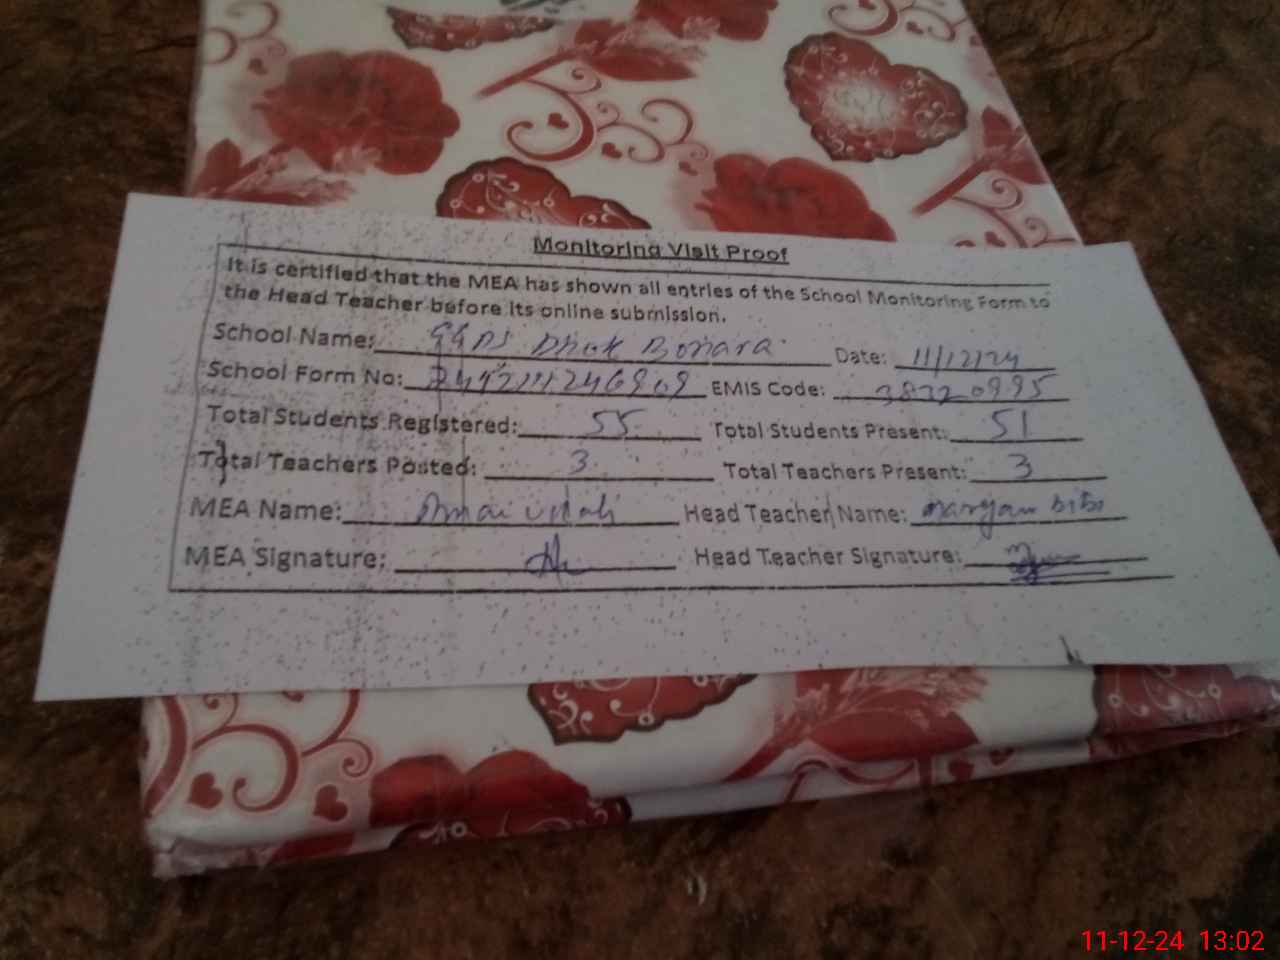 Monitoring Visit Proof
It is certified that the MEA has shown all entries of the School Monitoring Form to
the Head Teacher before its online submission.
School Name: GGPS Dhok Bonara Date: 11/12/24
School Form No: EMIS Code: 38320995
Total Students Registered: 55 Total Students Present: 51
Total Teachers Posted: 3 Total Teachers Present: 3
MEA Name: Head Teacher Name: maryam bibi
MEA Signature: Head Teacher Signature:
11-12-24 13:02